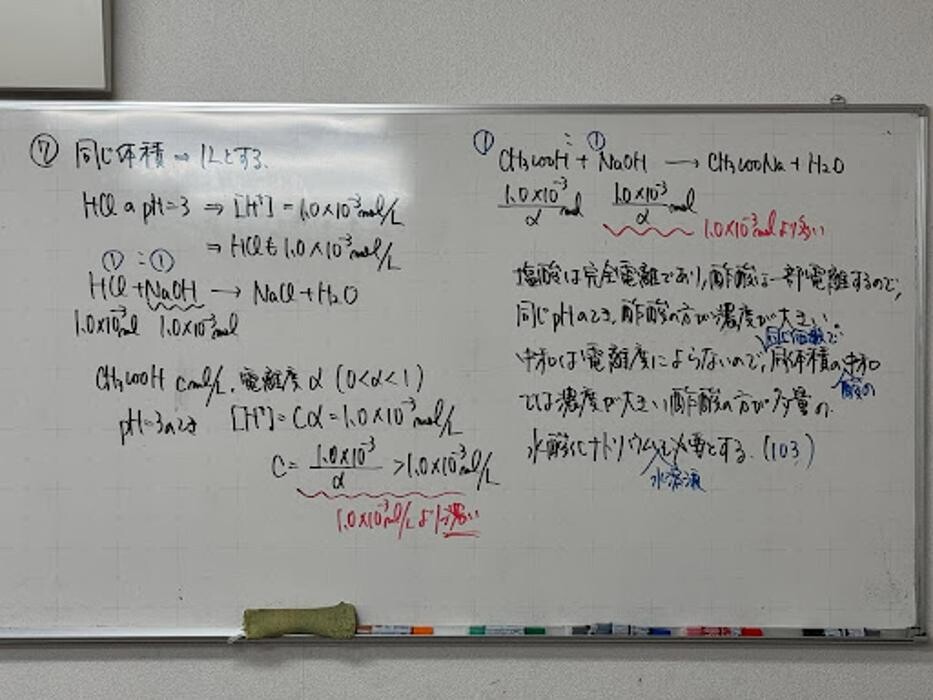 ⑦ 同じ体積 ⇒ 1Lとする.
HClのpH=3 ⇒ [H⁺] = 1.0×10⁻³mol/L
⇒ HClも1.0×10⁻³mol/L
① : ①
HCl + NaOH → NaCl + H₂O
1.0×10⁻³mol 1.0×10⁻³mol
CH₃COOH cmol/L, 電離度 α (0<α<1)
pH=3のとき [H⁺] = Cα = 1.0×10⁻³mol/L
C = 1.0×10⁻³/α > 1.0×10⁻³mol/L
1.0×10⁻³mol/Lより濃い
① : ①
CH₃COOH + NaOH → CH₃COONa + H₂O
1.0×10⁻³/α mol 1.0×10⁻³/α mol
1.0×10⁻³molより多い
塩酸は完全電離であり, 酢酸は一部電離するので,
同じpHのとき, 酢酸の方が濃度が大きい.
同じ価数で
中和は電離度によらないので, 同体積の中和
酸の
では濃度が大きい酢酸の方が多量の
水酸化ナトリウムを必要とする. (103)
水溶液